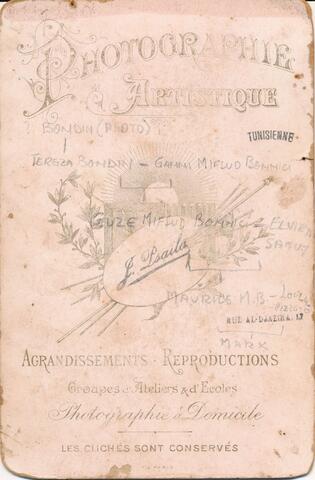 PHOTOGRAPHIE
ARTISTIQUE
? BONDIN (PHOTO) ?
TUNISIENNE
TEREZA BONDIN — GANNI MIFSUD BONNICI
GUZE MIFSUD BONNICI — ELVIRA
J. Psaila
MAURICE M.B. —
RUE AL-DJAZIRA. 17
MARK
AGRANDISSEMENTS - REPRODUCTIONS
Groupes d'Ateliers & d'Ecoles
Photographie à Domicile
LES CLICHÉS SONT CONSERVÉS